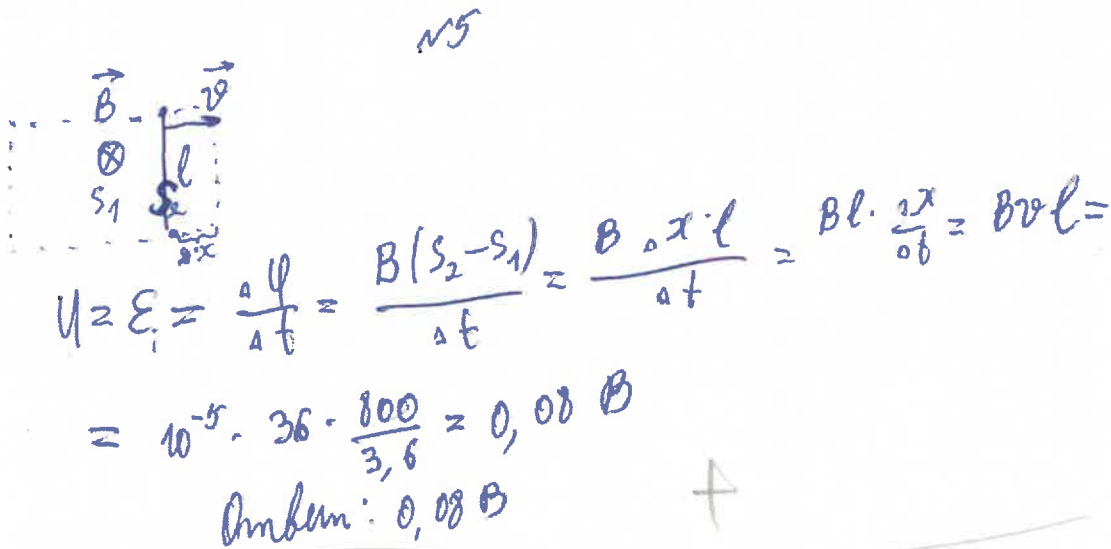 N5
B v
⊗ l
S₁ S₂
Δx
U = ℰᵢ = Δφ/Δt = B(S₂-S₁)/Δt = B Δx·l/Δt = Bl·Δx/Δt = Bvl =
= 10⁻⁵ · 36 · 800/3,6 = 0,08 В
Ответ: 0,08 В
+